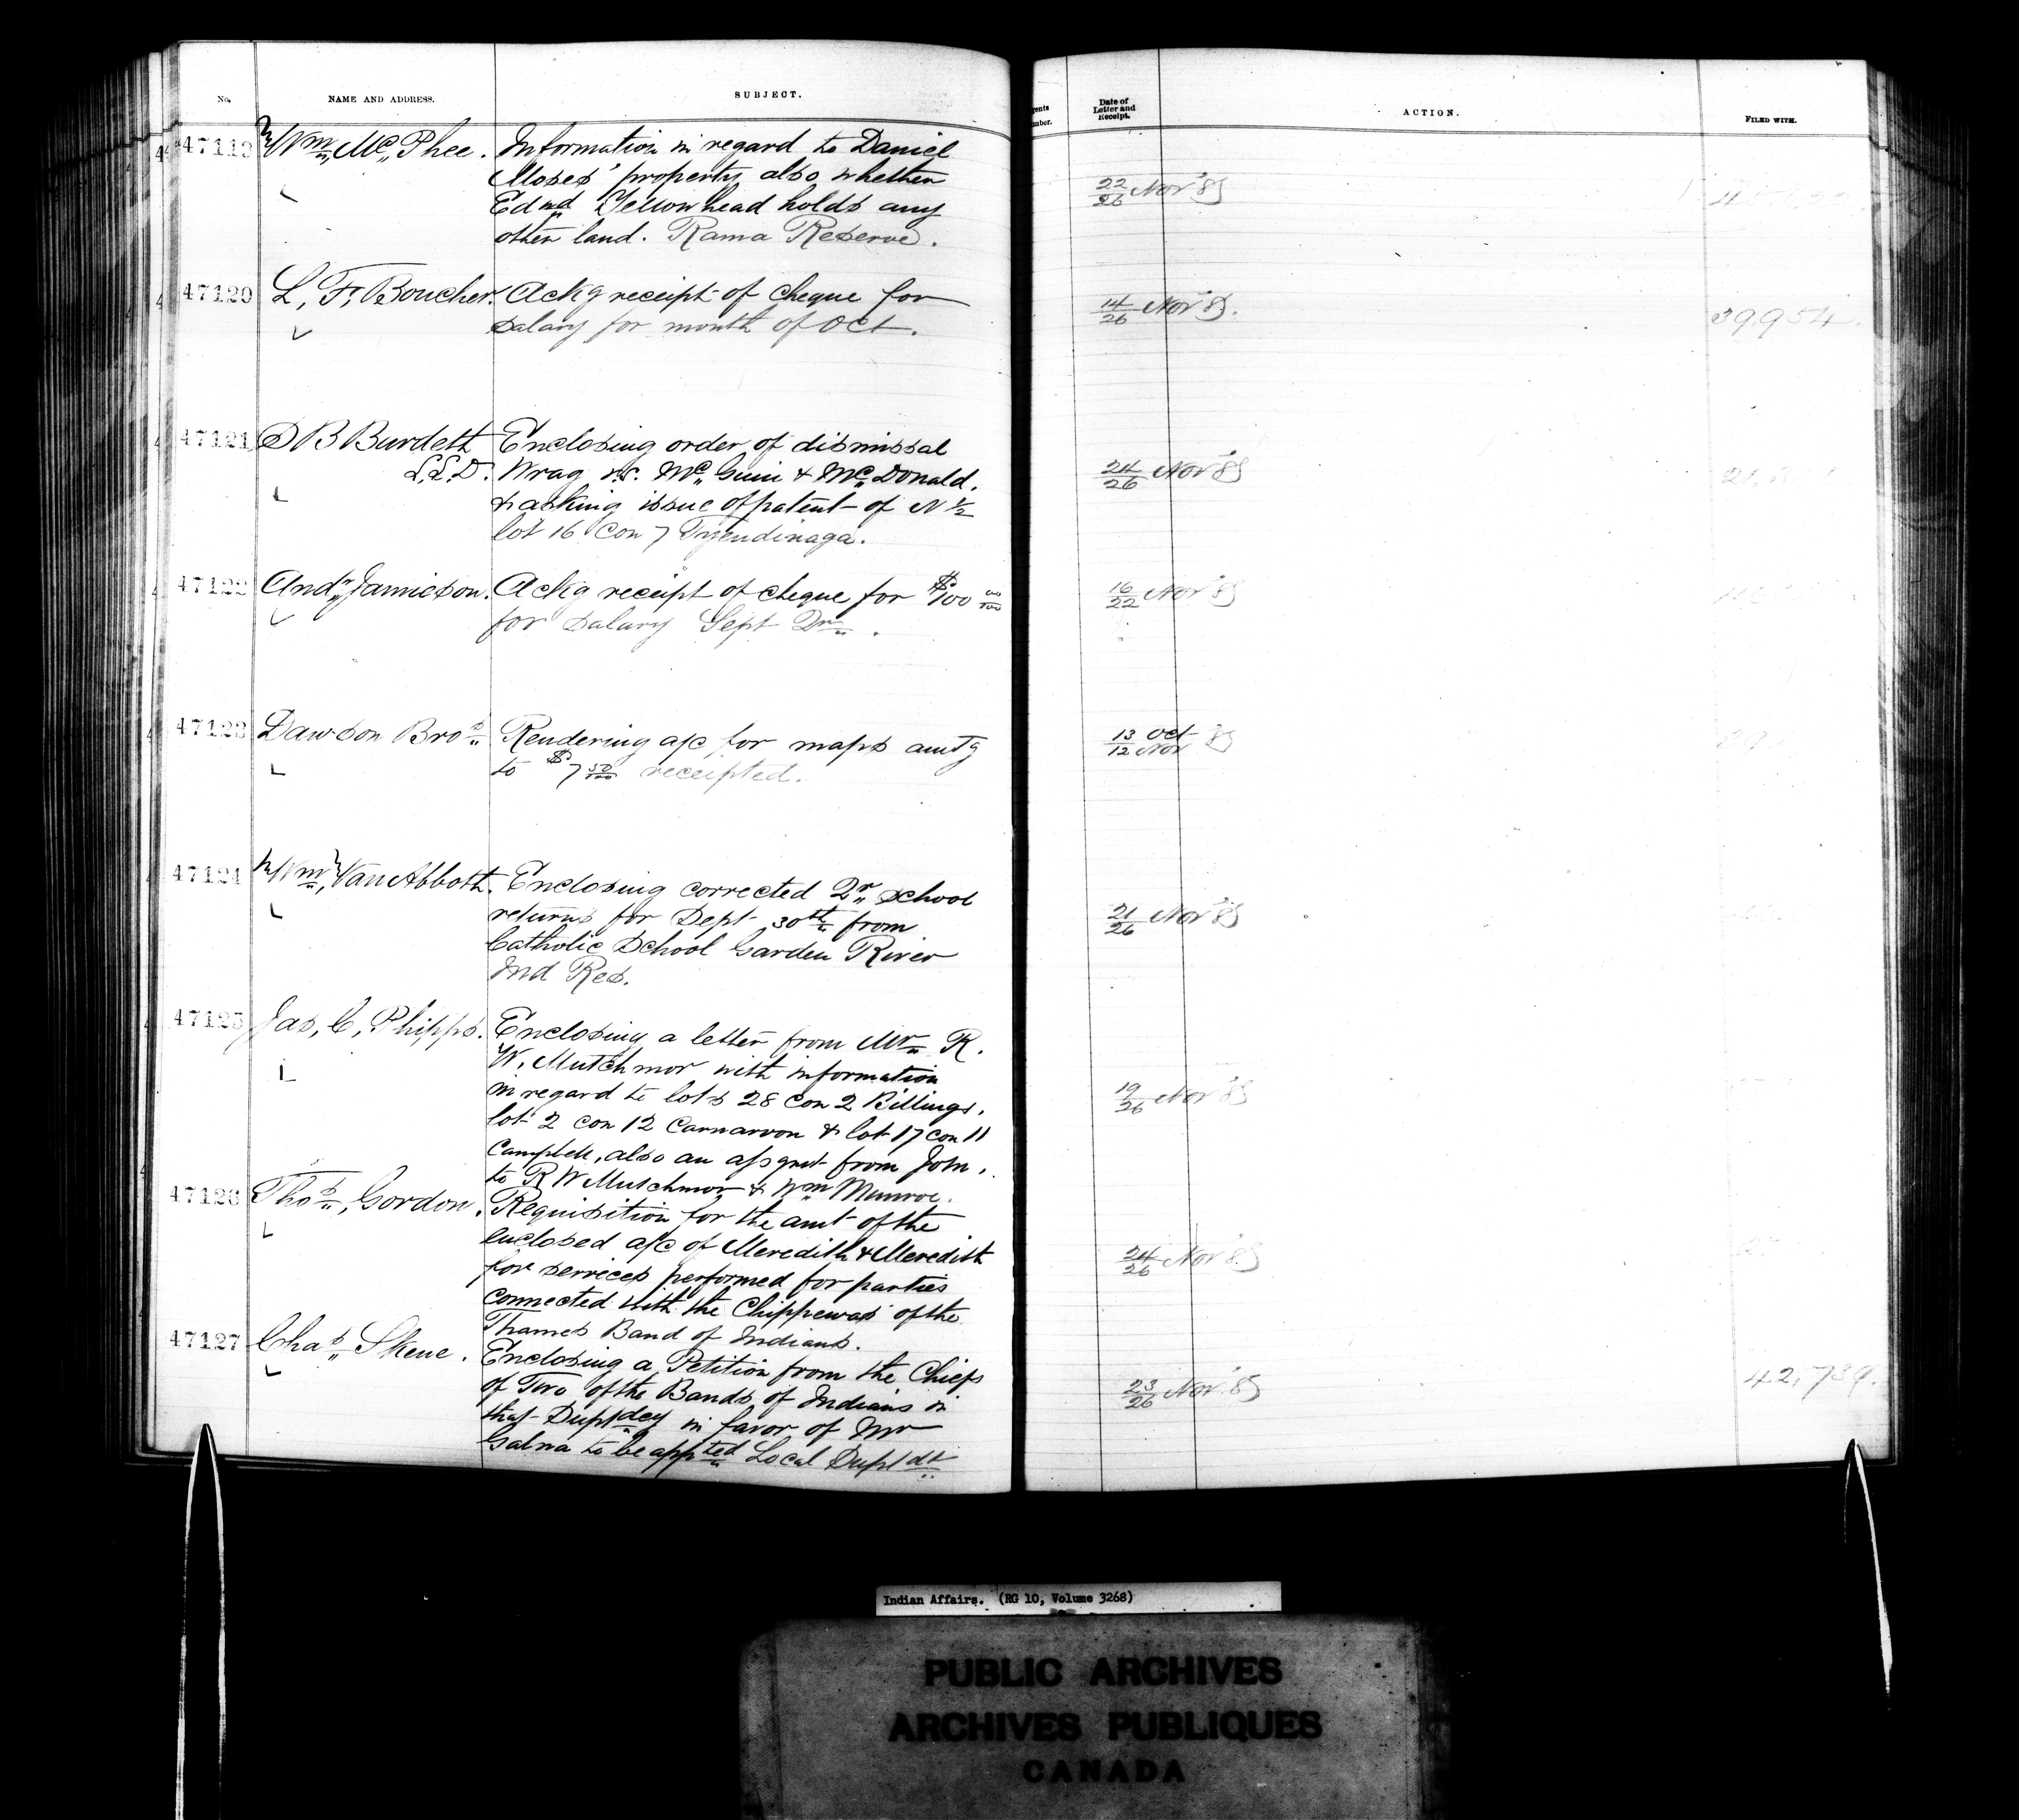 No.
NAME AND ADDRESS.
SUBJECT.
Date of
Letter and
Receipt.
ACTION.
FILED WITH.
Wm McPhee. Information in regard to Daniel
Moses' property, also whether
Edwd Yellowhead holds any
other land. Rama Reserve.
22/26 Nov '85
47120 L, F, Boucher. Ackg receipt of cheque for
salary for month of Oct.
14/26 Nov '85.
39,954.
47121 D B Burdett Enclosing order of dismissal
L.L.D. Wrag vs. McGuin & McDonald.
& asking issue of patent of N 1/2
lot 16 Con 7 Tyendinaga.
24/26 Nov '85
47122 Andw Jamieson. Ackg receipt of cheque for $100 00/100
for salary Sept Qr.
16/22 Nov '85
47123 Dawson Bros Rendering a/c for maps amtg
to $7 50/100 receipted.
13 Oct
12 Nov '85
47124 Wm Van Abbott. Enclosing corrected Qr school
returns for Sept 30th from
Catholic School Garden River
Ind Res.
21/26 Nov '85
47125 Jas, C, Phipps. Enclosing a letter from Mr R.
W. Mutchmor with information
in regard to lots 28 Con 2 Billings,
lot 2 con 12 Carnarvon & lot 17 con 11
Campbell, also an assgmt from John,
to R W Mutchmor & Wm Munroe.
19/26 Nov '85
47126 Thos, Gordon. Requisition for the amt of the
enclosed a/c of Meredith & Meredith
for services performed for parties
connected with the Chippewas of the
Thames Band of Indians.
24/26 Nov '85
47127 Chas Skene. Enclosing a Petition from the Chiefs
of Two of the Bands of Indians in
that Suptdcy in favor of Mr
Galna to be appted Local Suptdt
23/26 Nov. '85
42,739.
Indian Affairs. (RG 10, Volume 3268)
PUBLIC ARCHIVES
ARCHIVES PUBLIQUES
CANADA